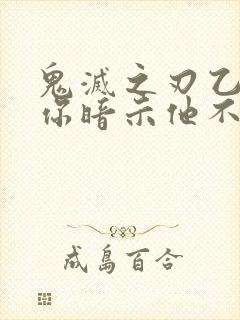 鬼滅之刃乙
你暗示他不
成島百合